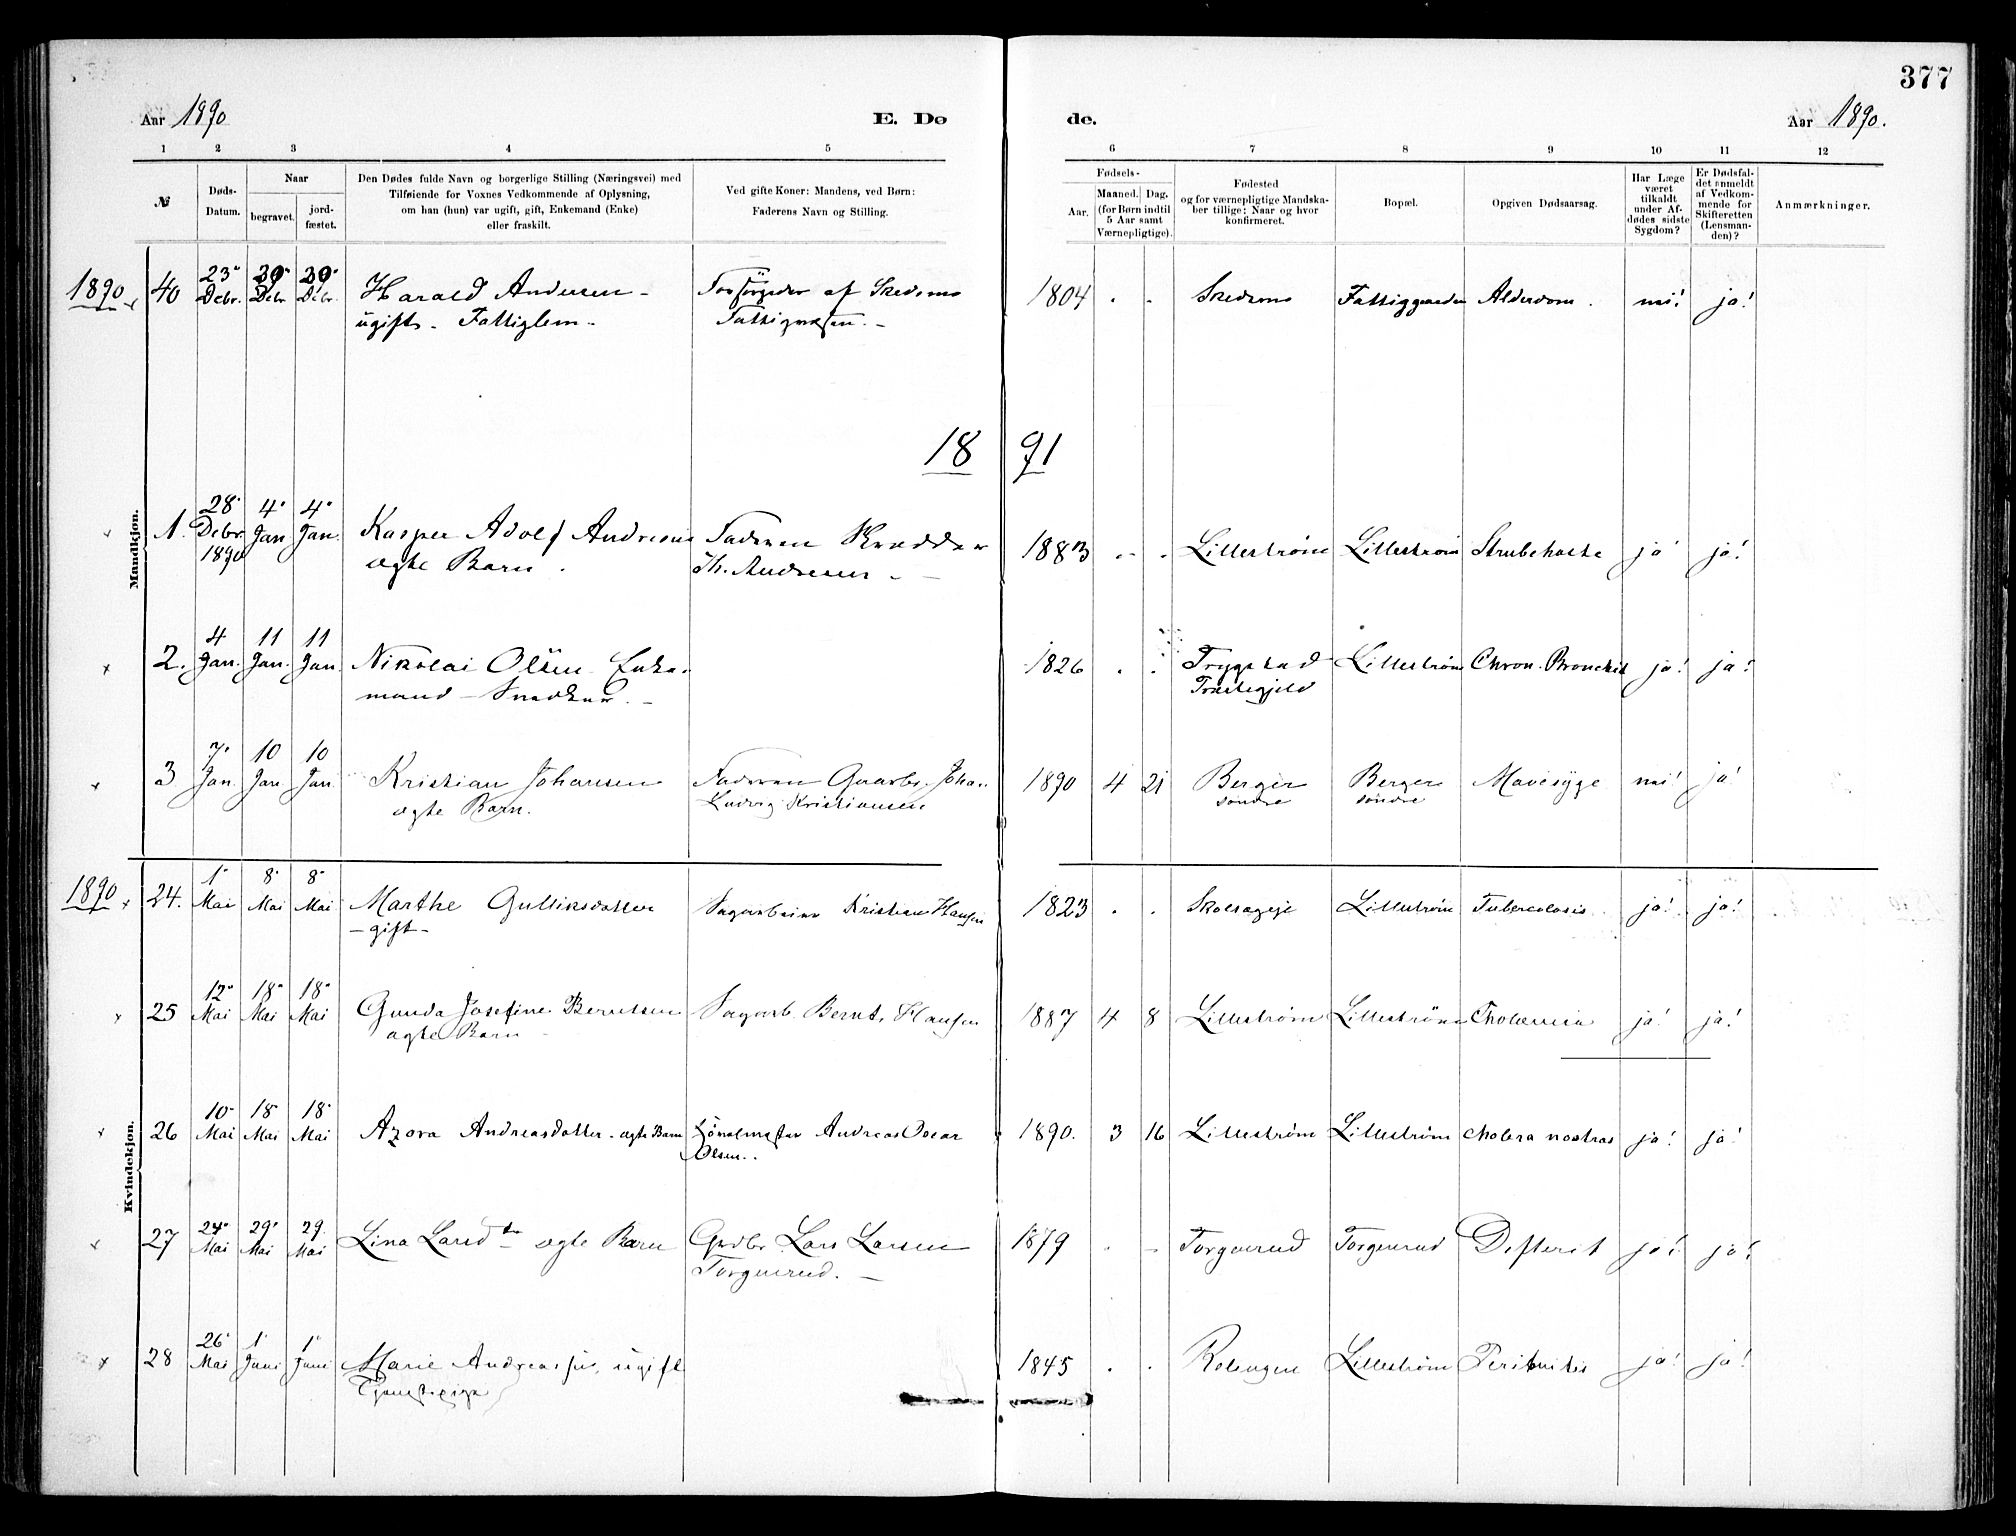 377
Aar 1890
E. Dø
de.
Aar 1890.
1 2 3 4 5 6 7 8 9 10 11 12
№
Døds-
Datum.
Naar
begravet.
jord-
fæstet.
Den Dødes fulde Navn og borgerlige Stilling (Næringsvei) med
Tilføiende for Voxnes Vedkommende af Oplysning,
om han (hun) var ugift, gift, Enkemand (Enke)
eller fraskilt.
Ved gifte Koner: Mandens, ved Børn:
Faderens Navn og Stilling.
Fødsels-
Aar.
Maaned. Dag.
(for Børn indtil
5 Aar samt
Værnepligtige).
Fødested
og for værnepligtige Mandska-
ber tillige: Naar og hvor
konfirmeret.
Bopæl.
Opgiven Dødsaarsag.
Har Læge
været
tilkaldt
under Af-
dødes sidste
Sygdom?
Er Dødsfal-
det anmeldt
af Vedkom-
mende for
Skifteretten
(Lensman-
den)?
Anmærkninger.
Mandkjøn.
1890 40 23 Debr. 30 Debr 30 Debr. Harald Andersen - Forsørgedes af Skedsmo 1804 . . Skedsmo Fattiggaarden Alderdom. nei! ja!
ugift - Fattiglem - Fattigvæsen. -
18 91
1. 28 Debr. 1890 4 Jan 4 Jan. Kasper Adolf Andresen Faderen Skrædder 1883 - . Lillestrøm Lillestrøm Strubehoste ja! ja!
ægte Barn. Th. Andresen -
2. 4 Jan. 11 Jan. 11 Jan. Nikolai Olsen Enke- 1826 . . Trygstad Lillestrøm Chron. Bronchit ja! ja!
mand - Snedker. - Præstegjeld
3 7 Jan. 10 Jan. 10 Jan. Kristian Johansen Faderen Gaardbr. Johan 1890 4 21 Berger Berger Mavesyge nei! ja!
ægte Barn. Ludvig Kristiansen søndre søndre
Kvindekjøn.
1890 24. 1 Mai 8 Mai 8 Mai Marthe Gulliksdatter Sagarbeider Kristian Hansen 1823 . . Lillestrøm Tuberculosis ja! ja!
- gift -
25 12 Mai 18 Mai 18 Mai Gunda Josefine Berntsen Sagarb. Bernt Hansen 1887 4 8 Lillestrøm Lillestrøm ja! ja!
ægte Barn
26 10 Mai 18 Mai 18 Mai Azora Andreasdatter. ægte Barn Andreas Oscar 1890. 3 16 Lillestrøm Lillestrøm cholera nostras ja! ja!
Olsen.
27 24 Mai 29 Mai 29. Mai Lina Larsdtr ægte Barn Grdbr Lars Larsen 1879 . - Torgenrud Torgenrud Difterit ja! ja!
Torgenrud. -
28 26 Mai 1 Juni 1 Juni Marie Andreasson, ugift 1845 . . Lillestrøm Peritonitis ja! ja!
Tjenestepige